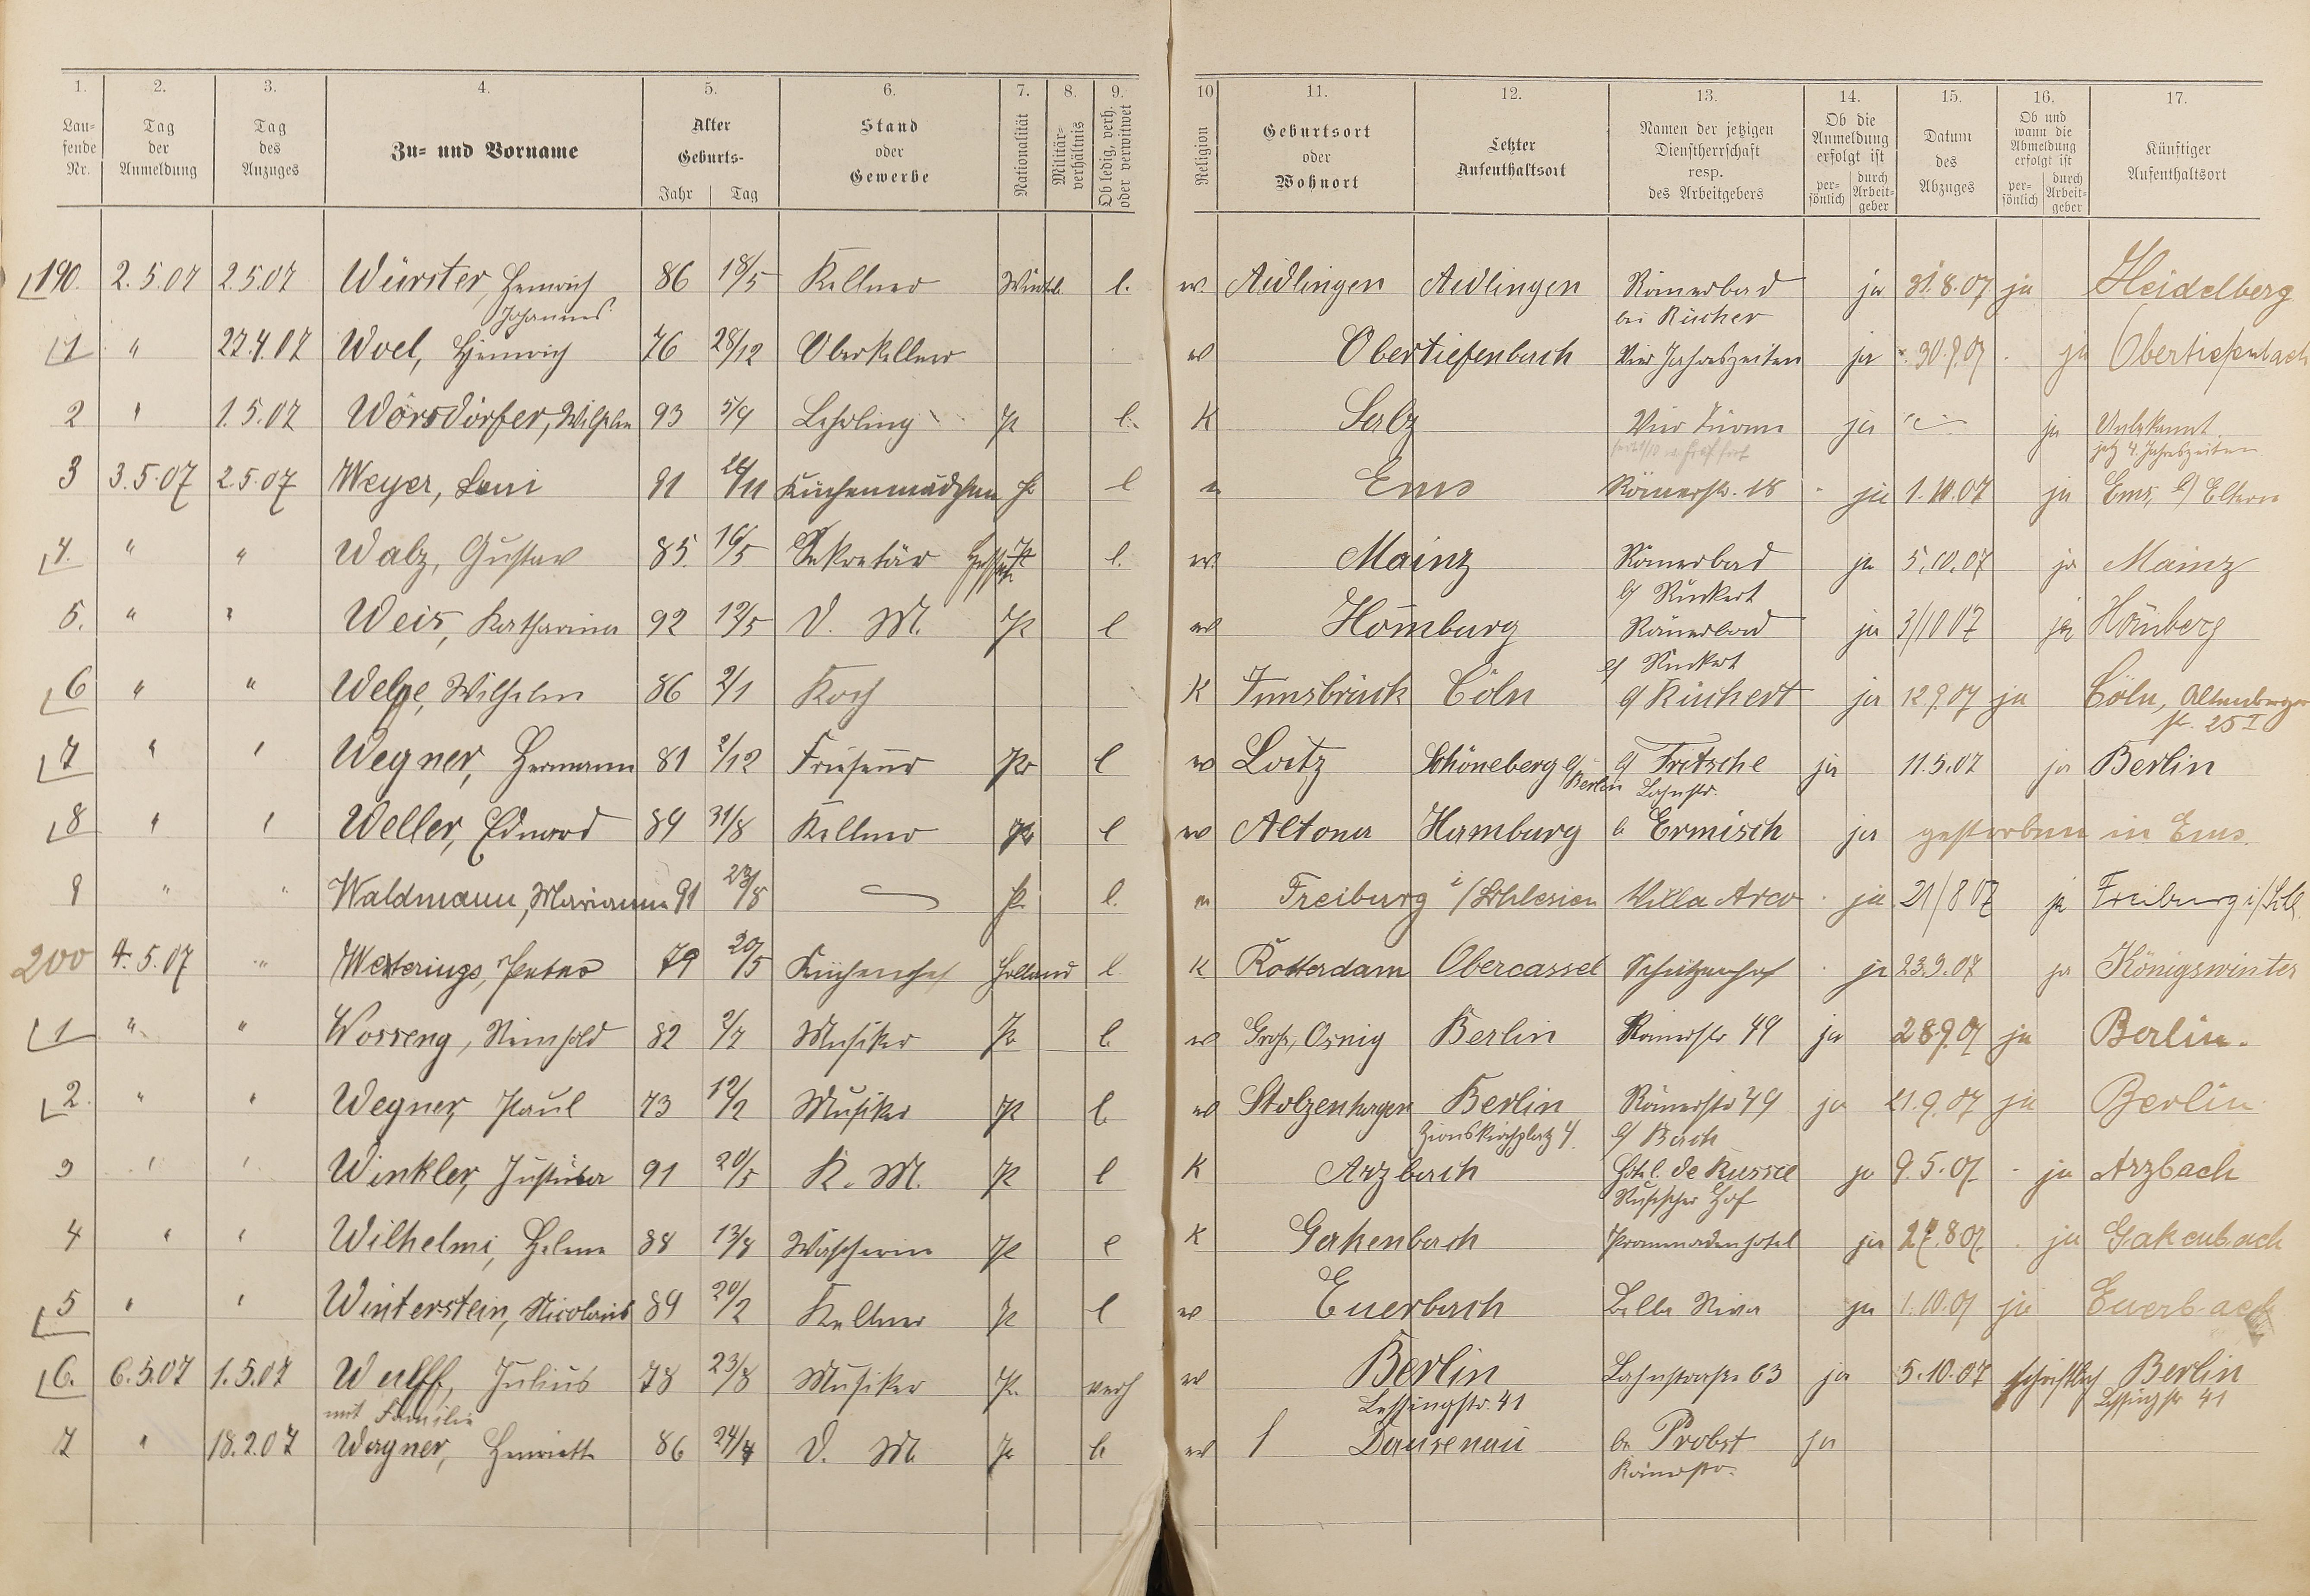 1. 2. 3. 4. 5. 6. 7. 8. 9. 10 11. 12. 13. 14. 15. 16. 17.
Lau-
fende
Nr.
Tag
der
Anmeldung
Tag
des
Anzuges
Zu- und Vorname
Alter
Geburts-
Jahr Tag
Stand
oder
Gewerbe
Nationalität
Militär-
verhältnis
Ob ledig, verh.
oder verwitwet
Religion
Geburtsort
oder
Wohnort
Letzter
Aufenthaltsort
Namen der jetzigen
Dienstherrschaft
resp.
des Arbeitgebers
Ob die
Anmeldung
erfolgt ist
per-
sönlich
durch
Arbeit-
geber
Datum
des
Abzuges
Ob und
wann die
Abmeldung
erfolgt ist
per-
sönlich
durch
Arbeit-
geber
Künftiger
Aufenthaltsort
190. 2.5.07 2.5.07 Würster, Heinrich 86 18/5 Kellner l. Aidlingen Aidlingen Römerbad ja 31.8.07 ja Heidelberg
Johannes
bei Rücker
1 " 22.4.07 Woel, Heinrich 76 28/12 Oberkellner Obertiefenbach Vier Jahreszeiten ja 30.9.07 ja Obertiefenbach
2 " 1.5.07 Wörsdörfer, Wilhelm 93 5/9 Lehrling Pr l. K Salz Vier Türme ja ja Unbekannt
jetz 4. Jahreszeiten
3 3.5.07 2.5.07 Weyer, Leni 91 Küchenmädchen Pr l Ems Römerstr. 18 ja 1.10.07 ja Ems, b/ Eltern
4. " " Walz, Gustav 85. 16/5 Sekretär l. Mainz Römerbad ja 5.10.07 ja Mainz
b/ Rückert
5. " " Weis, Katharina 92 12/5 D. M. Pr l Hömburg Römerbad ja 3/10 07 ja Hömberg
b/ Rückert
6 " " Welpe, Wilhelm 86 2/1 Koch K Innsbruck Cöln b/ Rückert ja 12.9.07 ja Cöln, Altenberger
st. 25 I
7 " " Wegner, Hermann 81 2/12 Friseur Pr l Loitz Schöneberg b/ b/ Fritsche ja 11.5.07 ja Berlin
Berlin Lahnstr.
8 " " Weller, Eduard 89 31/8 Kellner Pr l Altona Hamburg b Ermisch ja gestorben in Ems.
9 " " Waldmann, Marianne 91 23/8 — Pr l. Freiburg i/Schlesien Villa Arco ja 21/8 07 ja Freiburg i/Schl.
200 4.5.07 " Wetterings, Peter 79 20/5 Küchenchef Holland l K Rotterdam Obercassel Schützenhof ja 23.9.07 ja Königswinter
1 " " Worreng, Reinhold 82 2/7 Musiker Pr l. Gross Osnig Berlin Römerstr 49 ja 28.9.07 ja Berlin.
2. " " Wegner, Paul 73 12/2 Musiker Pr l. Stolzenhagen Berlin Römerstr 49 ja 21.9.07 ja Berlin
Zionskirchplatz 4. b/ Bach
3 " " Winkler, Justina 91 20/5 K. M. Pr l K Arzbach Hotel de Russie ja 9.5.07 ja Arzbach
Russischer Hof
4 " " Wilhelmi, Helene 88 13/8 Wäscherin Pr l K Gackenbach Promenadenhotel ja 27.8.07. ja Gakenbach
5 " " Winterstein, Nicolaus 89 20/2 Kellner Pr l Euerbach Bella Riva ja 1.10.07 ja Euerbach
6. 6.5.07 1.5.07 Wulff, Julius 78 23/8 Musiker Pr. verh Berlin Lahnstrasse 63 ja 5.10.07 schriftlich Berlin
mit Familie Lessingstr. 41 Lessingstr 41
7 " 18.2.07 Wagner, Henriette 86 D. M. Pr l. Dausenau bei Probst ja
Römerstr.